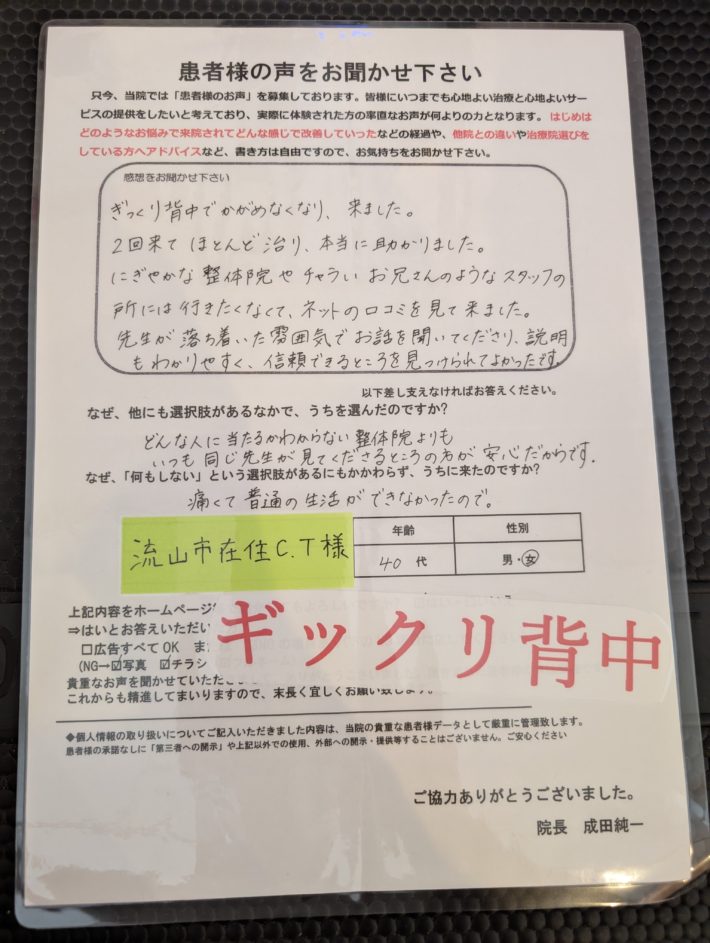 患者様の声をお聞かせ下さい
只今、当院では「患者様のお声」を募集しております。皆様にいつまでも心地よい治療と心地よいサー
ビスの提供をしたいと考えており、実際に体験された方の率直なお声が何よりの力となります。はじめは
どのようなお悩みで来院されてどんな感じで改善していったなどの経過や、他院との違いや治療院選びを
している方へアドバイスなど、書き方は自由ですので、お気持ちをお聞かせ下さい。
感想をお聞かせ下さい
ぎっくり背中でかがめなくなり、来ました。
2回来てほとんど治り、本当に助かりました。
にぎやかな整体院やチャラいお兄さんのようなスタッフの
所には行きたくなくて、ネットの口コミを見て来ました。
先生が落ち着いた雰囲気でお話を聞いてくださり、説明
もわかりやすく、信頼できるところを見つけられてよかったです。
以下差し支えなければお答えください。
なぜ、他にも選択肢があるなかで、うちを選んだのですか?
どんな人に当たるかわからない整体院よりも
いつも同じ先生が見てくださるところの方が安心だからです。
なぜ、「何もしない」という選択肢があるにもかかわらず、うちに来たのですか?
痛くて普通の生活ができなかったので。
流山市在住C.T様
年齢 性別
40代 男・女
上記内容をホームページ
⇒はいとお答えいただい
□広告すべてOK ま
(NG→☑写真 ☑チラシ
ギックリ背中
貴重なお声を聞かせていただ
これからも精進してまいりますので、末長く宜しくお願い致します。
◆個人情報の取り扱いについてご記入いただきました内容は、当院の貴重な患者様データとして厳重に管理致します。
患者様の承諾なしに「第三者への開示」や上記以外での使用、外部への開示・提供等することはございません。ご安心ください
ご協力ありがとうございました。
院長 成田純一